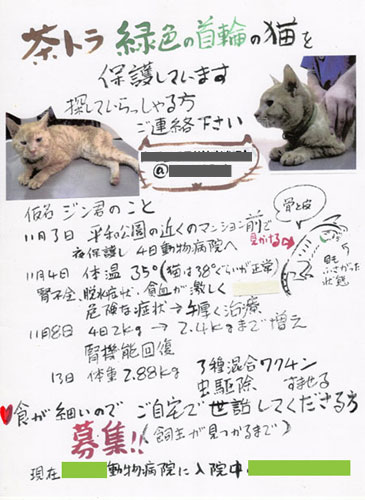 茶トラ 緑色の首輪の猫を
保護しています
探していらっしゃる方
ご連絡下さい
@
仮名 ジン君のこと
11月3日 平和公園の近くのマンション前で
見かける
夜保護し 4日動物病院へ
骨と皮
眼ふさがった状態
11月4日 体温 35°(猫は38°ぐらいが正常)
腎不全、脱水症状、貧血が激しく
危険な症状→手厚く治療
11月8日 4日2kg → 2.4kgまで増え
腎機能回復
13日 体重2.88kg 3種混合ワクチン
虫駆除 すませる
食が細いので ご自宅で世話してくださる方
募集!!(飼主が見つかるまで)
現在 動物病院に入院中